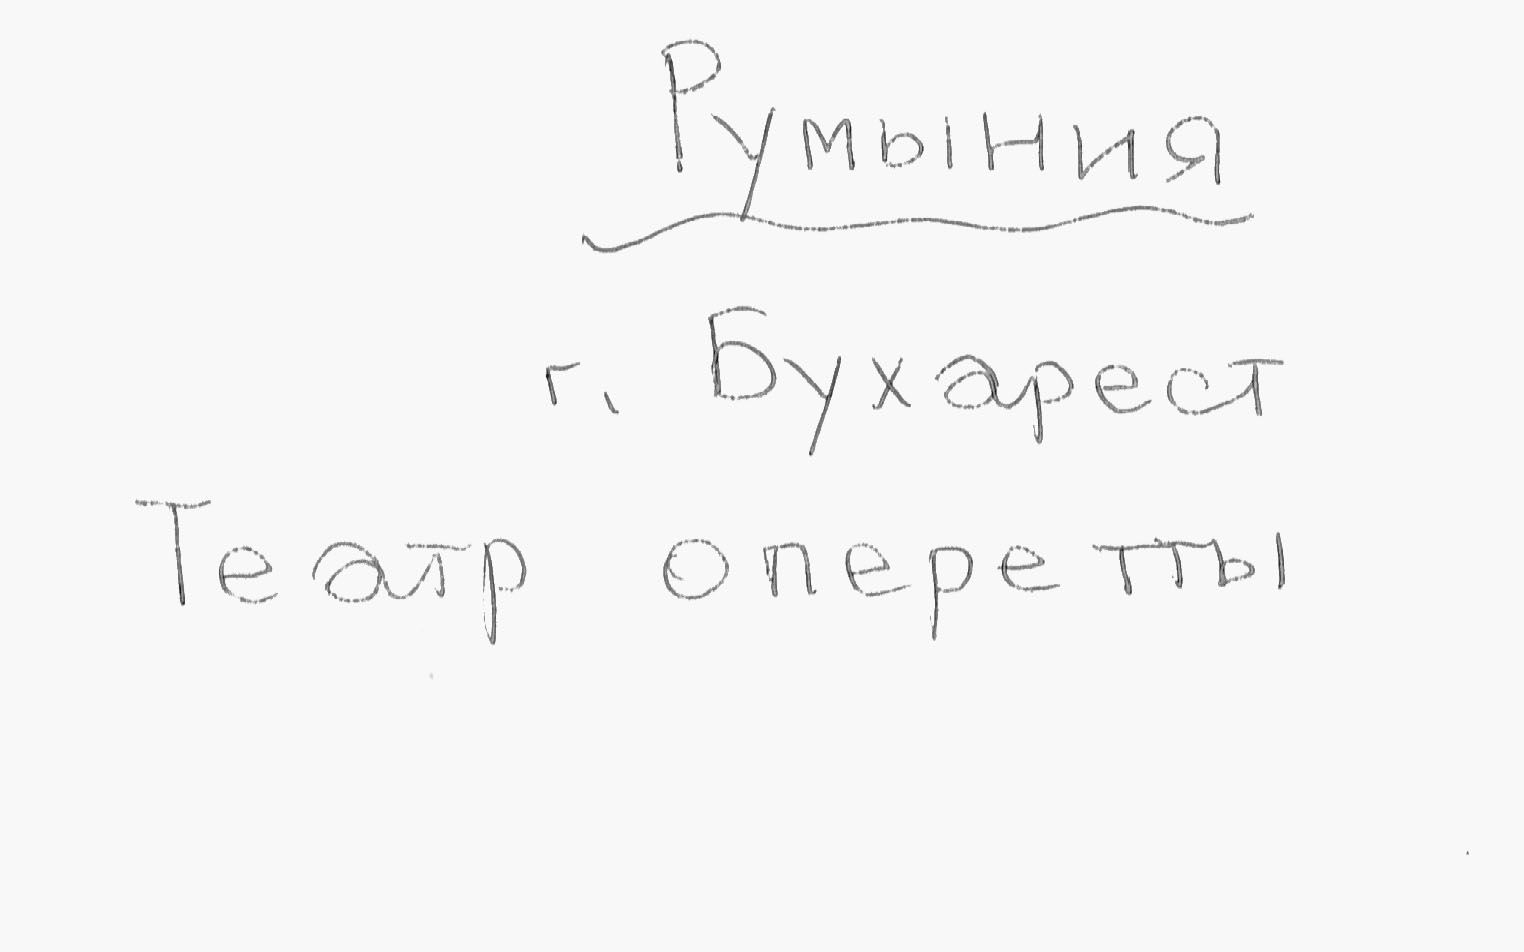 Румыния
г. Бухарест
Театр оперетты